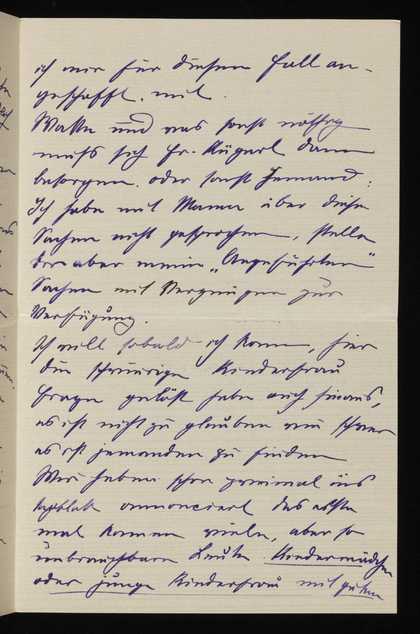 ich mir für diesen Fall an-
geschafft, mit.
Watte und was sonst nöthig
muß sich Fr. dann
besorgen. oder sonst Jemand;
Ich habe mit Mama über diese
Sachen nicht gesprochen, stelle
Dir aber meine „Angeführten"
Sachen mit Vergnügen zur
Verfügung.
Ich will sobald ich kann, hier
die schwierige Kinderfrau
Frage gelöst habe auch hinaus,
es ist nicht zu glauben wie schwer
es ist jemanden zu finden
Wir haben schon zweimal ins
annonciert das erste
mal kamen viele, aber so
unbrauchbare Leute. Kindermädchen
oder junge Kinderfrau mit guten